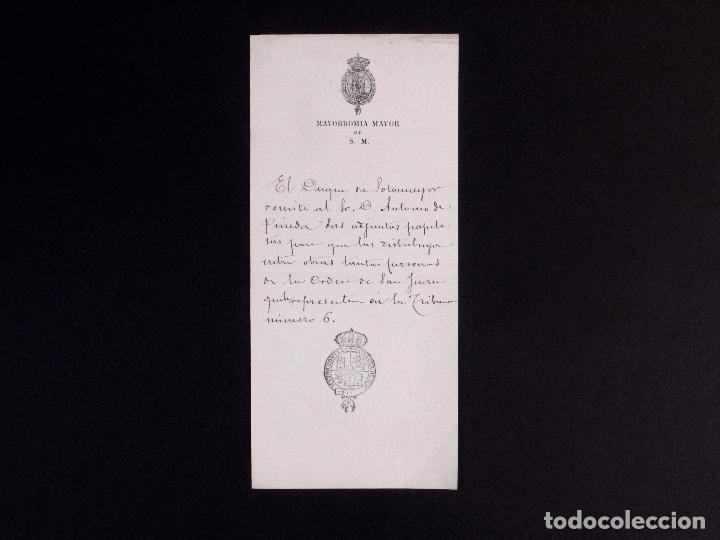 MAYORDOMIA MAYOR
DE
S. M.
El Duque de Sotomayor
remite al Sr. D. Antonio de
Pineda las adjuntas papele
tas para que las distribuya
entre otras tantas personas
de la Orden de San Juan
que la representen en la Tribuna
número 6.
todocoleccion.net